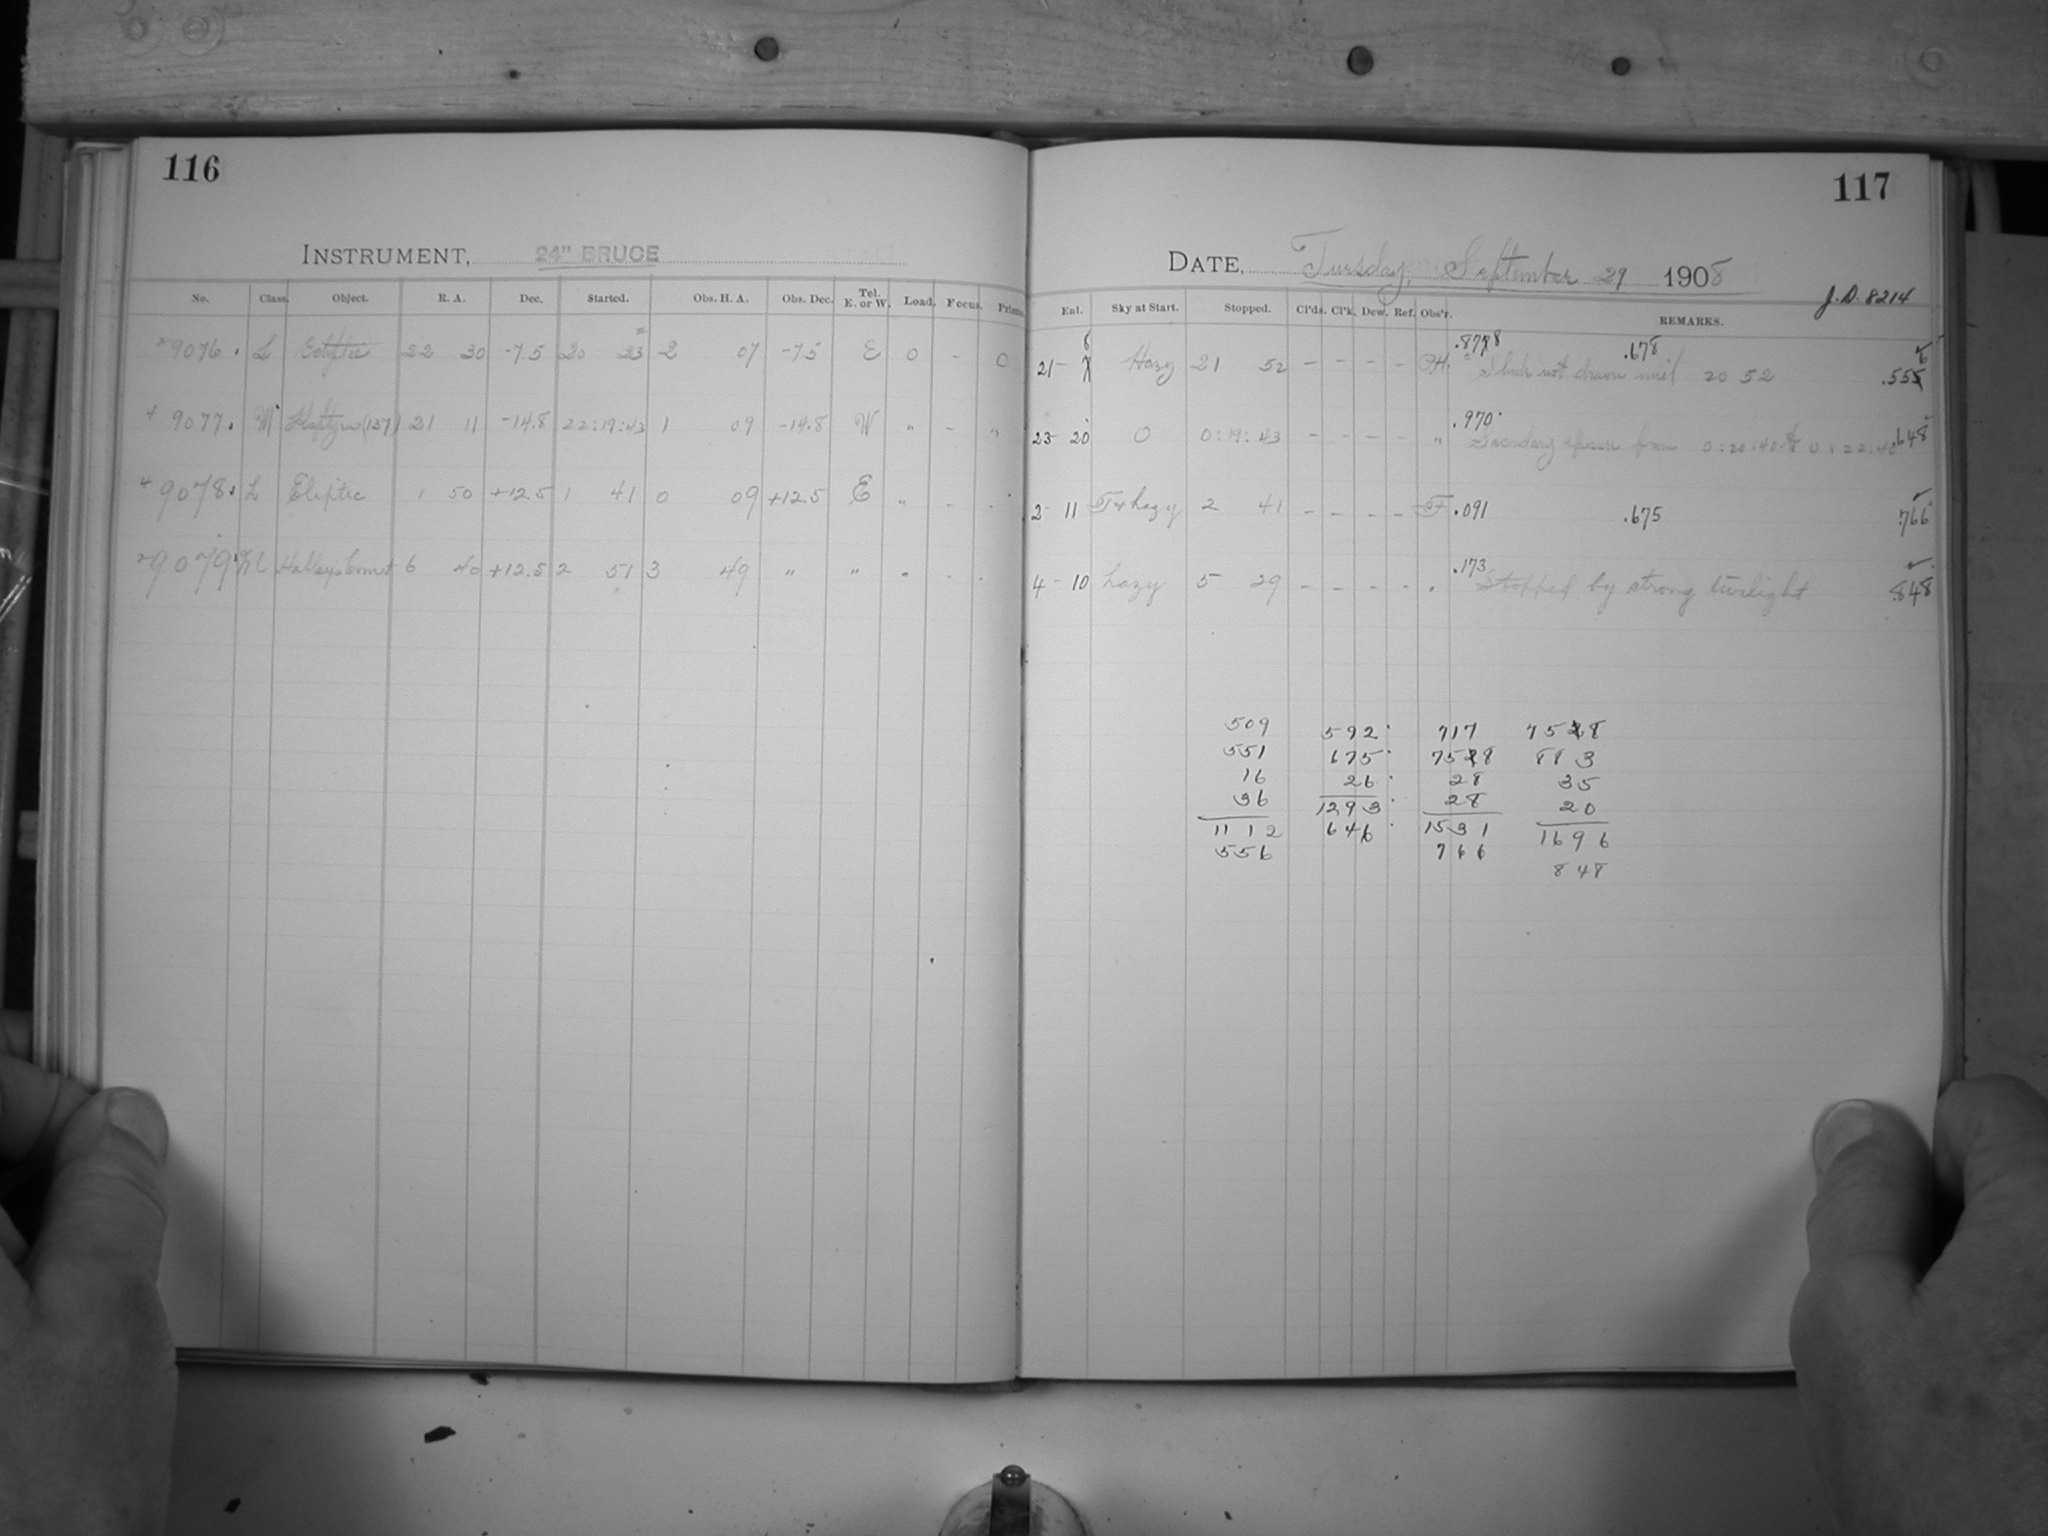 116
INSTRUMENT, 24" BRUCE
No. Class. Object. R. A. Dec. Started. Obs. H. A. Obs. Dec. Tel. E. or W. Load. Focus. Prisms.
9076. L Ecliptic 22 30 -7.5 20 23 2 07 -7.5 E 0 - 0
9077. M Kapteyn (137) 21 11 -14.8 22:19:43 1 09 -14.8 W " - "
9078. L Ecliptic 1 50 +12.5 1 41 0 09 +12.5 E " - .
9079 M Halley's Comet 6 40 +12.5 2 51 3 49 " " . - .
117
DATE, Tuesday, September 29 1908
J.D. 8214
Enl. Sky at Start. Stopped. Cl'ds. Cl'k. Dew. Ref. Obs'r. REMARKS.
21- 8 Hazy 21 52 - - - - .678
Slide not drawn until 20 52
23- 20 0 0:19:43 - - - - " .970 .648
Secondary exposure from 0:20:40 to 0:22:40
2- 11 hazy 2 41 - - - - F .091 .675 .766
4- 10 hazy 5 29 - - - - . .173 Stopped by strong twilight 848
509 592 717 7528
551 675 7528 883
16 26 28 35
36 1293 28 20
1112 646 1531 1696
556 766 848